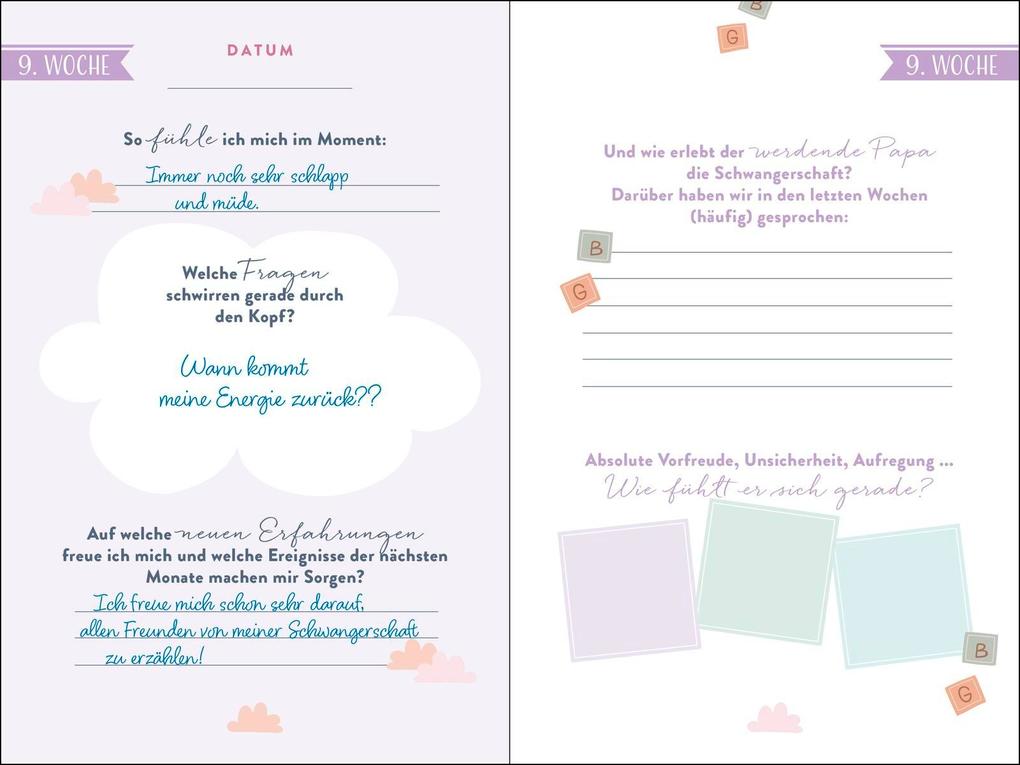 9. WOCHE
DATUM
So fühle ich mich im Moment:
Immer noch sehr schlapp
und müde.
Welche Fragen
schwirren gerade durch
den Kopf?
Wann kommt
meine Energie zurück??
Auf welche neuen Erfahrungen
freue ich mich und welche Ereignisse der nächsten
Monate machen mir Sorgen?
Ich freue mich schon sehr darauf,
allen Freunden von meiner Schwangerschaft
zu erzählen!
B
G
9. WOCHE
Und wie erlebt der werdende Papa
die Schwangerschaft?
Darüber haben wir in den letzten Wochen
(häufig) gesprochen:
B
G
Absolute Vorfreude, Unsicherheit, Aufregung ...
Wie fühlt er sich gerade?
B
G